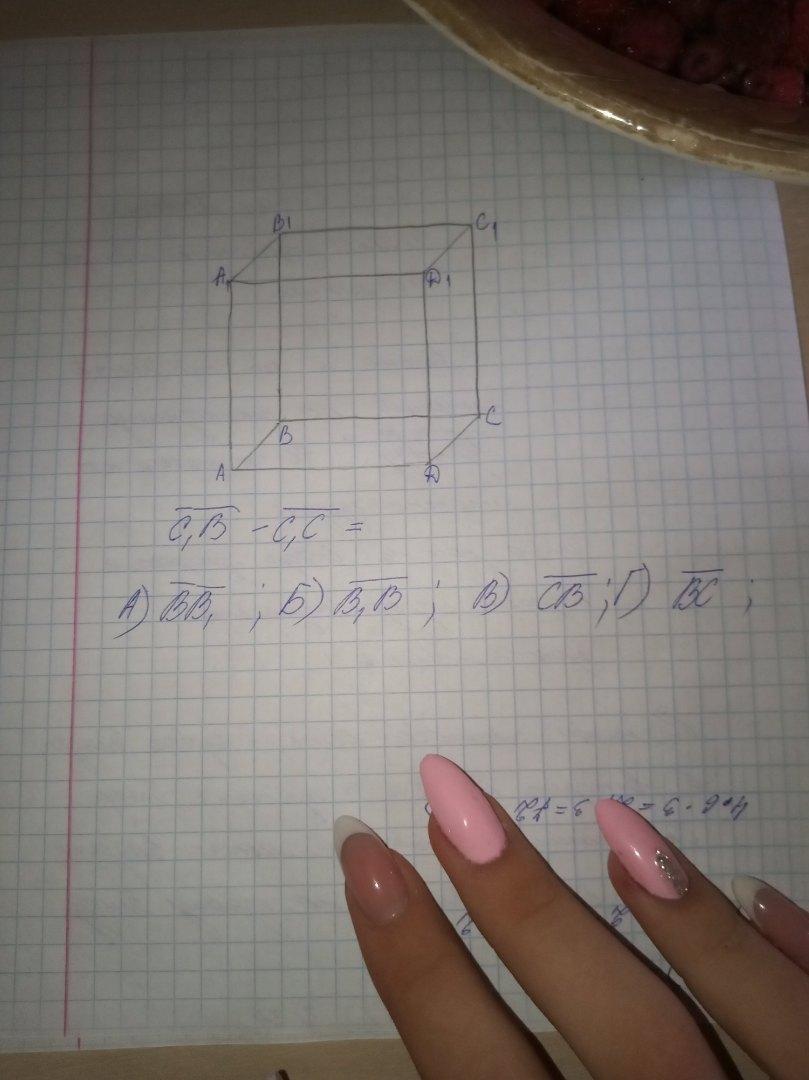 B1 C1
A1 D1
B C
A D
C₁B - C₁C =
А) BB₁ ; Б) B₁B ; В) CB ; Г) BC ;
4·6·3=
3=72
2